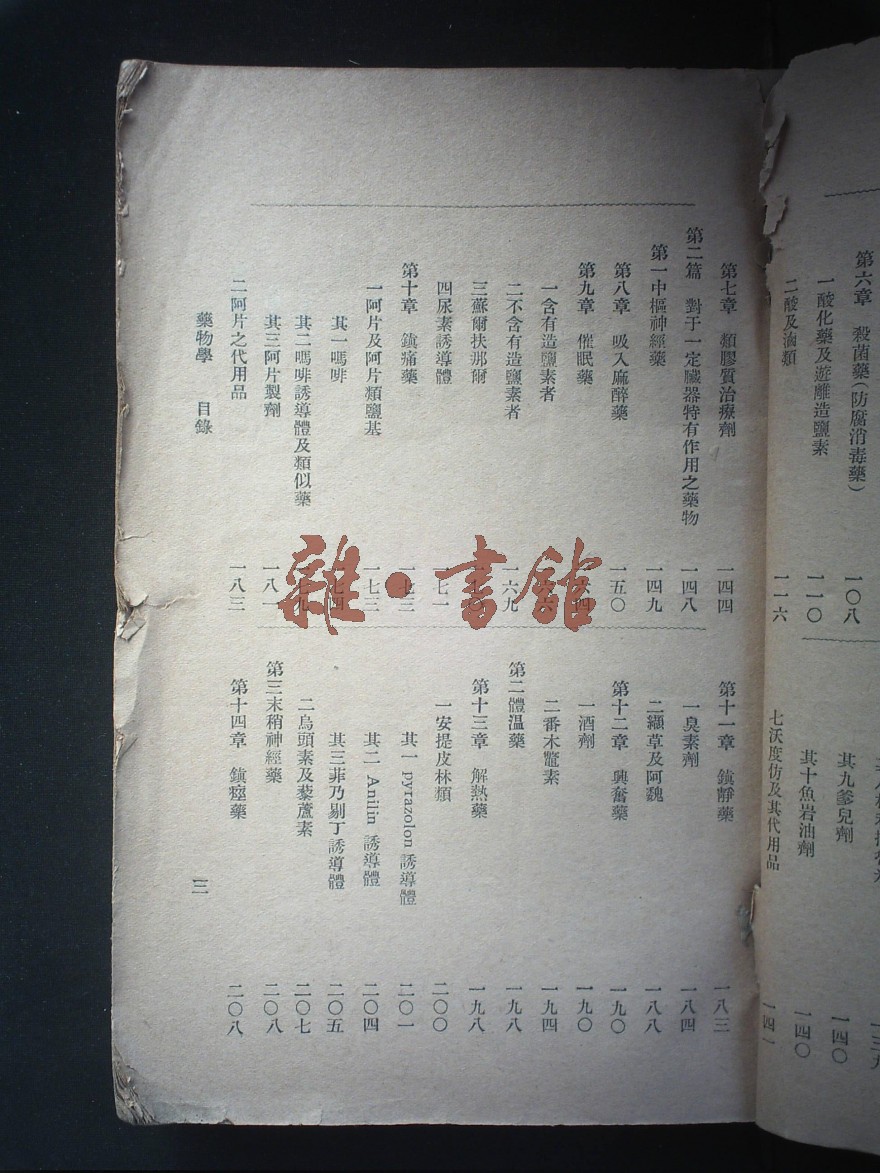 第六章　殺菌藥(防腐消毒藥)　一〇八
一酸化藥及遊離造鹽素　一一〇
二酸及滷類　一一六
其九爹兒劑　一四〇
其十魚岩油劑　一四〇
七沃度仿及其代用品　一四一
第七章　類膠質治療劑　一四四
第二篇　對于一定臟器特有作用之藥物　一四八
第一中樞神經藥　一四九
第八章　吸入麻醉藥　一五〇
第九章　催眠藥
一含有造鹽素者
二不含有造鹽素者　一六九
三蘇爾扶那爾
四尿素誘導體　一七一
第十章　鎮痛藥　一七三
一阿片及阿片類鹽基　一七三
其一嗎啡　一七四
其二嗎啡誘導體及類似藥　一七九
其三阿片製劑　一八一
二阿片之代用品　一八三
第十一章　鎮靜藥　一八三
一臭素劑　一八四
二纈草及阿魏　一八八
第十二章　興奮藥　一九〇
一酒劑　一九〇
二番木鼈素　一九四
第二體温藥　一九八
第十三章　解熱藥　一九八
一安提皮林類　二〇〇
其一 pyrazolon 誘導體　二〇一
其二 Anilin 誘導體　二〇四
其三菲乃剔丁誘導體　二〇五
二烏頭素及藜蘆素　二〇七
第三末稍神經藥　二〇八
第十四章　鎮痙藥　二〇八
藥物學　目錄
三
雜·書館